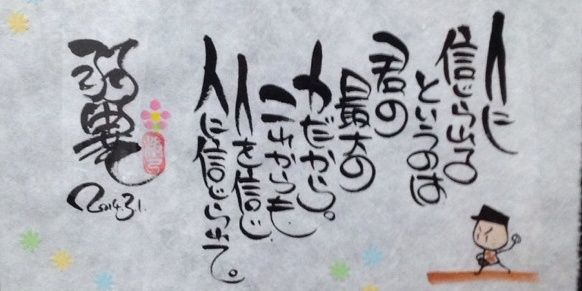 人に
信じられる
というのは
君の
最大の
力だから。
これからも
人を信じ
人に信じられて。
2014.3.1.